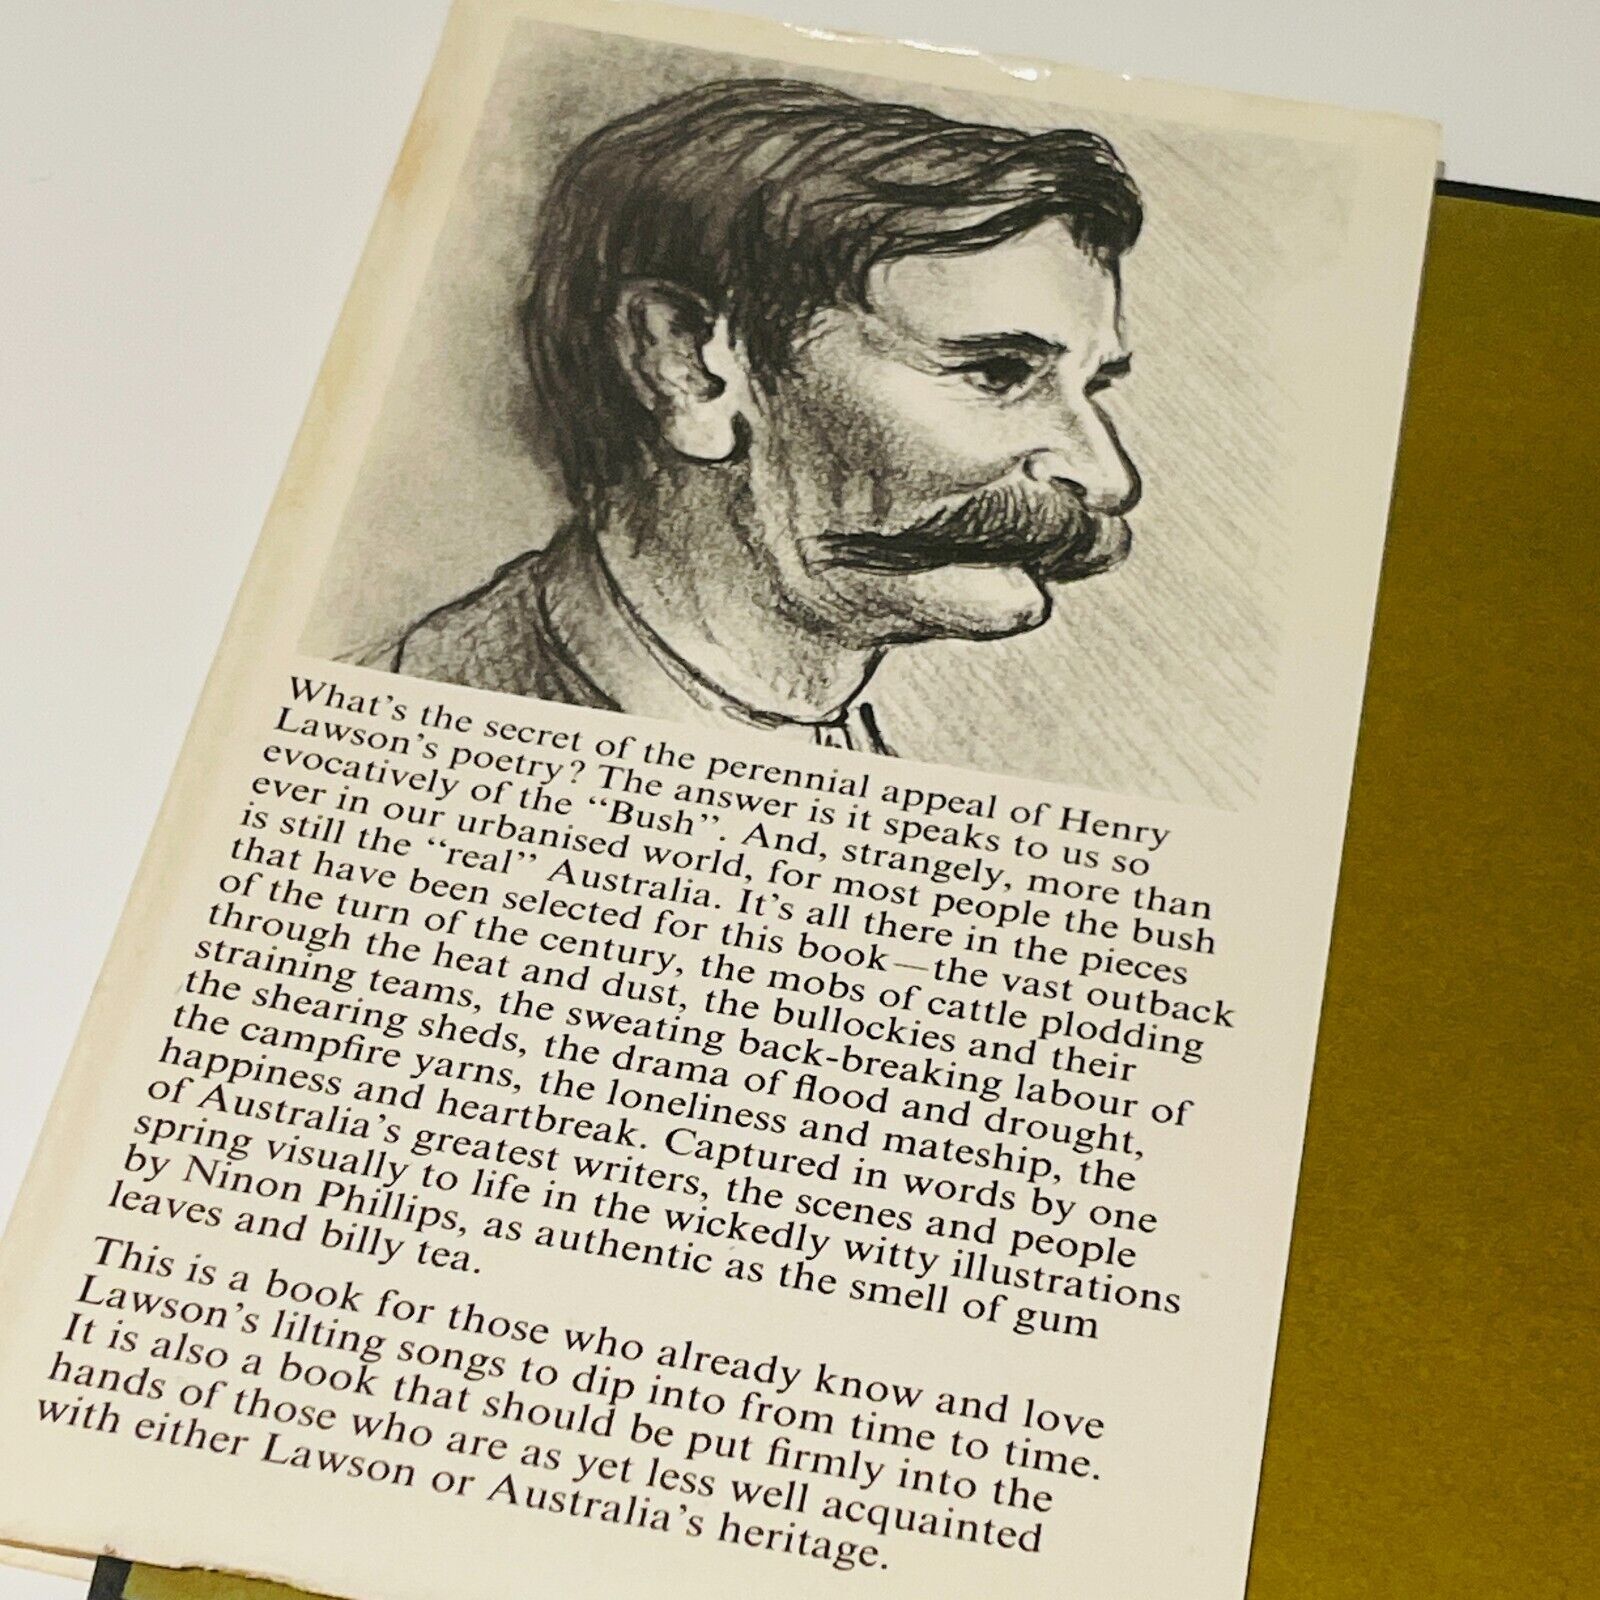 What's the secret of the perennial appeal of Henry
Lawson's poetry? The answer is it speaks to us so
evocatively of the “Bush”. And, strangely, more than
ever in our urbanised world, for most people the bush
is still the “real” Australia. It's all there in the pieces
that have been selected for this book—the vast outback
of the turn of the century, the mobs of cattle plodding
through the heat and dust, the bullockies and their
straining teams, the sweating back-breaking labour of
the shearing sheds, the drama of flood and drought,
the campfire yarns, the loneliness and mateship, the
happiness and heartbreak. Captured in words by one
of Australia's greatest writers, the scenes and people
spring visually to life in the wickedly witty illustrations
by Ninon Phillips, as authentic as the smell of gum
leaves and billy tea.
This is a book for those who already know and love
Lawson's lilting songs to dip into from time to time.
It is also a book that should be put firmly into the
hands of those who are as yet less well acquainted
with either Lawson or Australia's heritage.